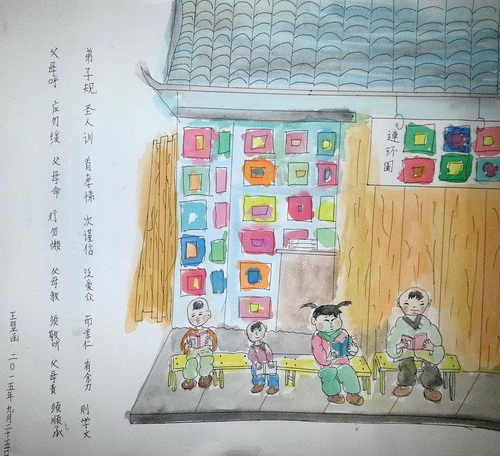 弟子规 圣人训 首孝悌 次谨信 泛爱众 而亲仁 有余力 则学文
父母呼 应勿缓 父母命 行勿懒 父母教 须敬听 父母责 须顺承
二〇一五年九月二十五日
連环圖